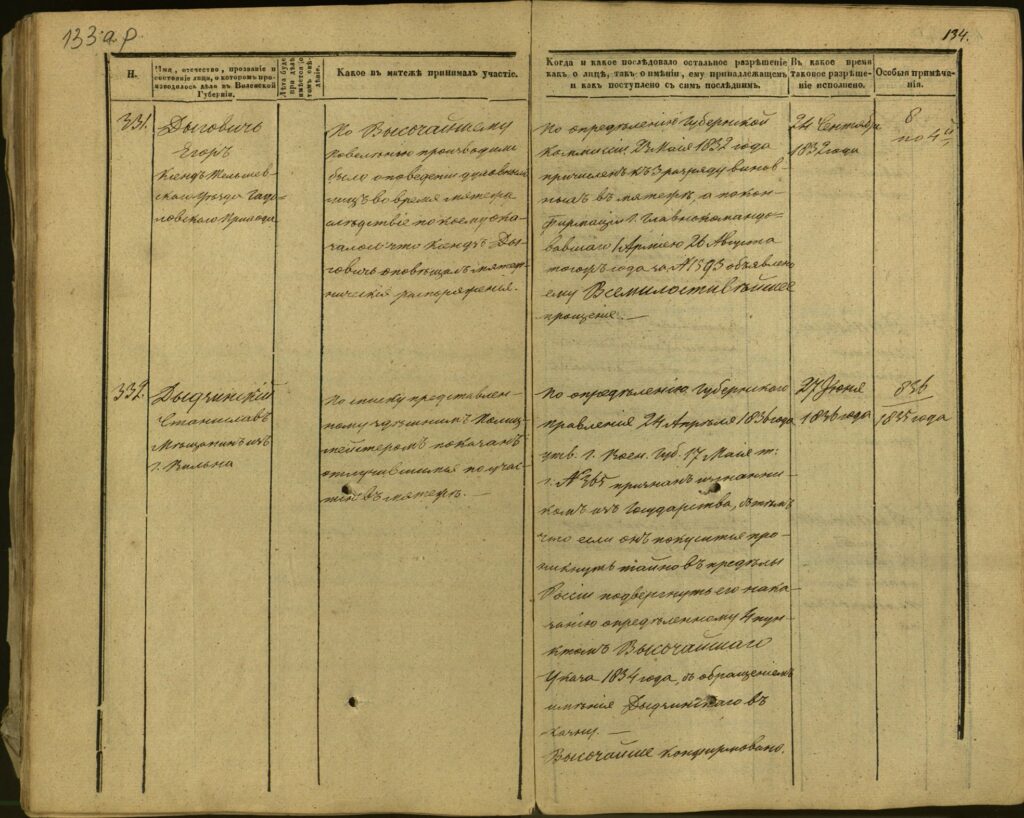 133 a. p.
134.
Н.
Имя, отечество, прозваніе и
состояніе лица, о которомъ про-
изводилось дѣло въ Виленской
Губерніи.
Какое въ мятежѣ принималъ участіе.
Когда и какое послѣдовало остальное разрѣшеніе
какъ о лицѣ, такъ о имѣніи, ему принадлежащемъ
и какъ поступлено съ симъ послѣднимъ.
Въ какое время
таковое разрѣше-
ніе исполнено.
Особыя примѣча-
нія.
331.
Дыговичъ
Егоръ
Ксендзъ Тельшев-
скаго Уѣзда
Прихода
По Высочайшему
повелѣнію производимо
было о поведеніи духовныхъ
лицъ во время мятежа
слѣдствіе по коему ока-
залось что Ксендзъ Ды-
говичъ оповѣщалъ мятеж-
ническія распоряженія.
По опредѣленію Губернской
Коммисіи 23 Мая 1832 года
причисленъ къ 3 разряду винов-
ныхъ въ мятежѣ, а по кон-
фирмаціи Г. Главнокомандо-
вавшаго 1 Арміею 26 Августа
тогожъ года за № 1593 объявлено
ему Всемилостивѣйшее
прощеніе. —
24 Сентября
1832 года
8
по 4й
332.
Дыдчинскій
Станиславъ
Мѣщанинъ изъ
г. Вильна
По списку представлен-
ному здѣшнимъ Полиц-
мейстеромъ показанъ
отлучившимся по учас-
тію въ мятежѣ. —
По опредѣленію Губернскаго
правленія 24 Апрѣля 1836 года
утв. г. Воен. Губ. 17 Мая т.
г. № 365 признанъ изгнанни-
комъ изъ Государства, съ тѣмъ
что если онъ покусится про-
никнуть тайно въ предѣлы
Россіи подвергнуть его нака-
занію опредѣленному 4 пун-
ктомъ Высочайшаго
Указа 1834 года, съ обращеніемъ
имѣнія Дыдчинскаго въ
казну. —
Высочайше конфирмовано.
27 Іюня
1836 года
836
1835 года